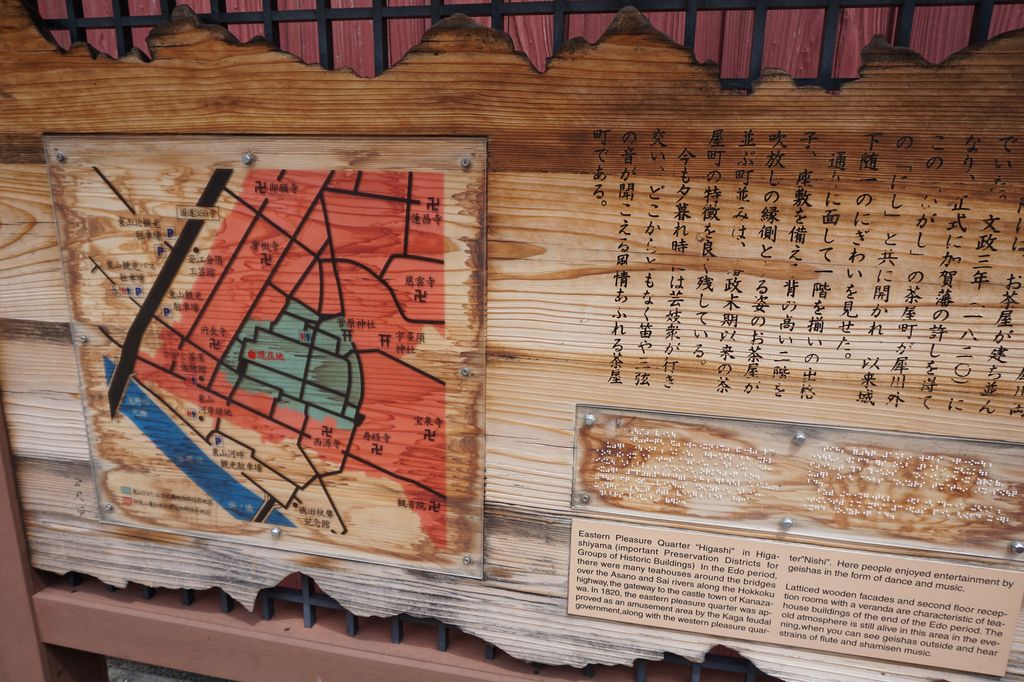 国道359号
卍御願寺
蓮昌寺
東山北観光
駐車場
安江金箔
工芸館
東山観光バス
駐車場
東山観光
駐車場
慈雲寺
円長寺
菅原神社
宇多須
神社
ひがし茶屋
休憩館
現在地
東山
河岸緑地
西源寺
寿経寺
宝泉寺
東山河畔
観光駐車場
徳田秋聲
記念館
観音院
お茶屋が建ち並ん
でいた。文政三年(一八二〇)に
なり、正式に加賀藩の許しを得て
この「ひがし」の茶屋町が犀川外
の「にし」と共に開かれ、以来城
下随一のにぎわいを見せた。
通りに面して一階を揃いの出格
子、座敷を備えて背の高い二階を
吹放しの縁側とする姿のお茶屋が
並ぶ町並みは、藩政末期以来の茶
屋町の特徴を良く残している。
今も夕暮れ時には芸妓衆が行き
交い、どこからともなく笛や三弦
の音が聞こえる風情あふれる茶屋
町である。
Eastern Pleasure Quarter "Higashi" in Higa-
shiyama (important Preservation Districts for
Groups of Historic Buildings) In the Edo period,
there were many teahouses around the bridges
over the Asano and Sai rivers along the Hokkoku
highway, the gateway to the castle town of Kanaza-
wa. In 1820, the eastern pleasure quarter was ap-
proved as an amusement area by the Kaga feudal
government,along with the western pleasure quar-
ter"Nishi". Here people enjoyed entertainment by
geishas in the form of dance and music.
Latticed wooden facades and second floor recep-
tion rooms with a veranda are characteristic of tea-
house buildings of the end of the Edo period. The
old atmosphere is still alive in this area in the eve-
ning,when you can see geishas outside and hear
strains of flute and shamisen music.